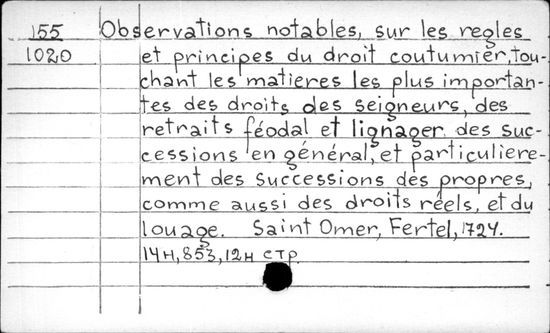 155 Observations notables, sur les regles
1020 et principes du droit coutumier, tou-
chant les matieres les plus importan-
tes des droits des seigneurs, des
retraits féodal et lignager des suc-
cessions en général, et particuliere-
ment des successions des propres,
comme aussi des droits réels, et du
louage. Saint Omer, Fertel, 1724.
14н, 853, 12н стр.